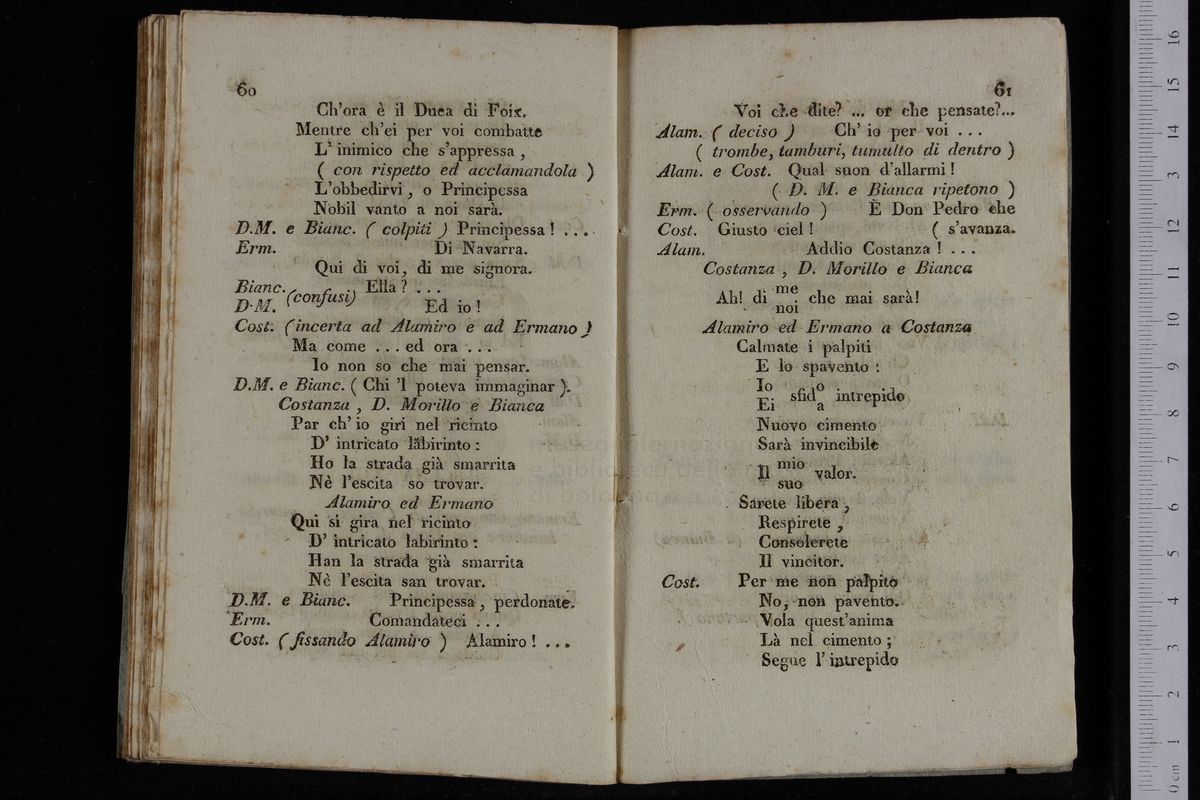 60
Ch'ora è il Duca di Foix.
Mentre ch'ei per voi combatte
L' inimico che s'appressa ,
( con rispetto ed acclamandola )
L'obbedirvi , o Principessa
Nobil vanto a noi sarà.
D.M. e Bianc. ( colpiti ) Principessa ! ....
Erm. Di Navarra.
Qui di voi, di me signora.
Bianc. (confusi) Ella ? ...
D.M. Ed io !
Cost. (incerta ad Alamiro e ad Ermano )
Ma come ... ed ora ...
Io non so che mai pensar.
D.M. e Bianc. ( Chi 'l poteva immaginar ).
Costanza , D. Morillo e Bianca
Par ch' io giri nel ricinto
D' intricato labirinto :
Ho la strada già smarrita
Nè l'escita so trovar.
Alamiro ed Ermano
Qui si gira nel ricinto
D' intricato labirinto :
Han la strada già smarrita
Nè l'escita san trovar.
D.M. e Bianc. Principessa , perdonate.
Erm. Comandateci ...
Cost. ( fissando Alamiro ) Alamiro ! ...
61
Voi che dite? ... or che pensate?...
Alam. ( deciso ) Ch' io per voi ...
( trombe, tamburi, tumulto di dentro )
Alam. e Cost. Qual suon d'allarmi !
( D. M. e Bianca ripetono )
Erm. ( osservando ) È Don Pedro che
Cost. Giusto ciel ! ( s'avanza.
Alam. Addio Costanza ! ...
Costanza , D. Morillo e Bianca
Ah! di me che mai sarà!
noi
Alamiro ed Ermano a Costanza
Calmate i palpiti
E lo spavento :
Io sfido intrepido
Ei a
Nuovo cimento
Sarà invincibile
Il mio valor.
suo
Sarete libera ,
Respirete ,
Consolerete
Il vincitor.
Cost. Per me non palpito
No, non pavento.
Vola quest'anima
Là nel cimento ;
Segue l' intrepido
museo internazionale
e biblioteca della musica
di bologna
0 cm 1 2 3 4 5 6 7 8 9 10 11 12 13 14 15 16